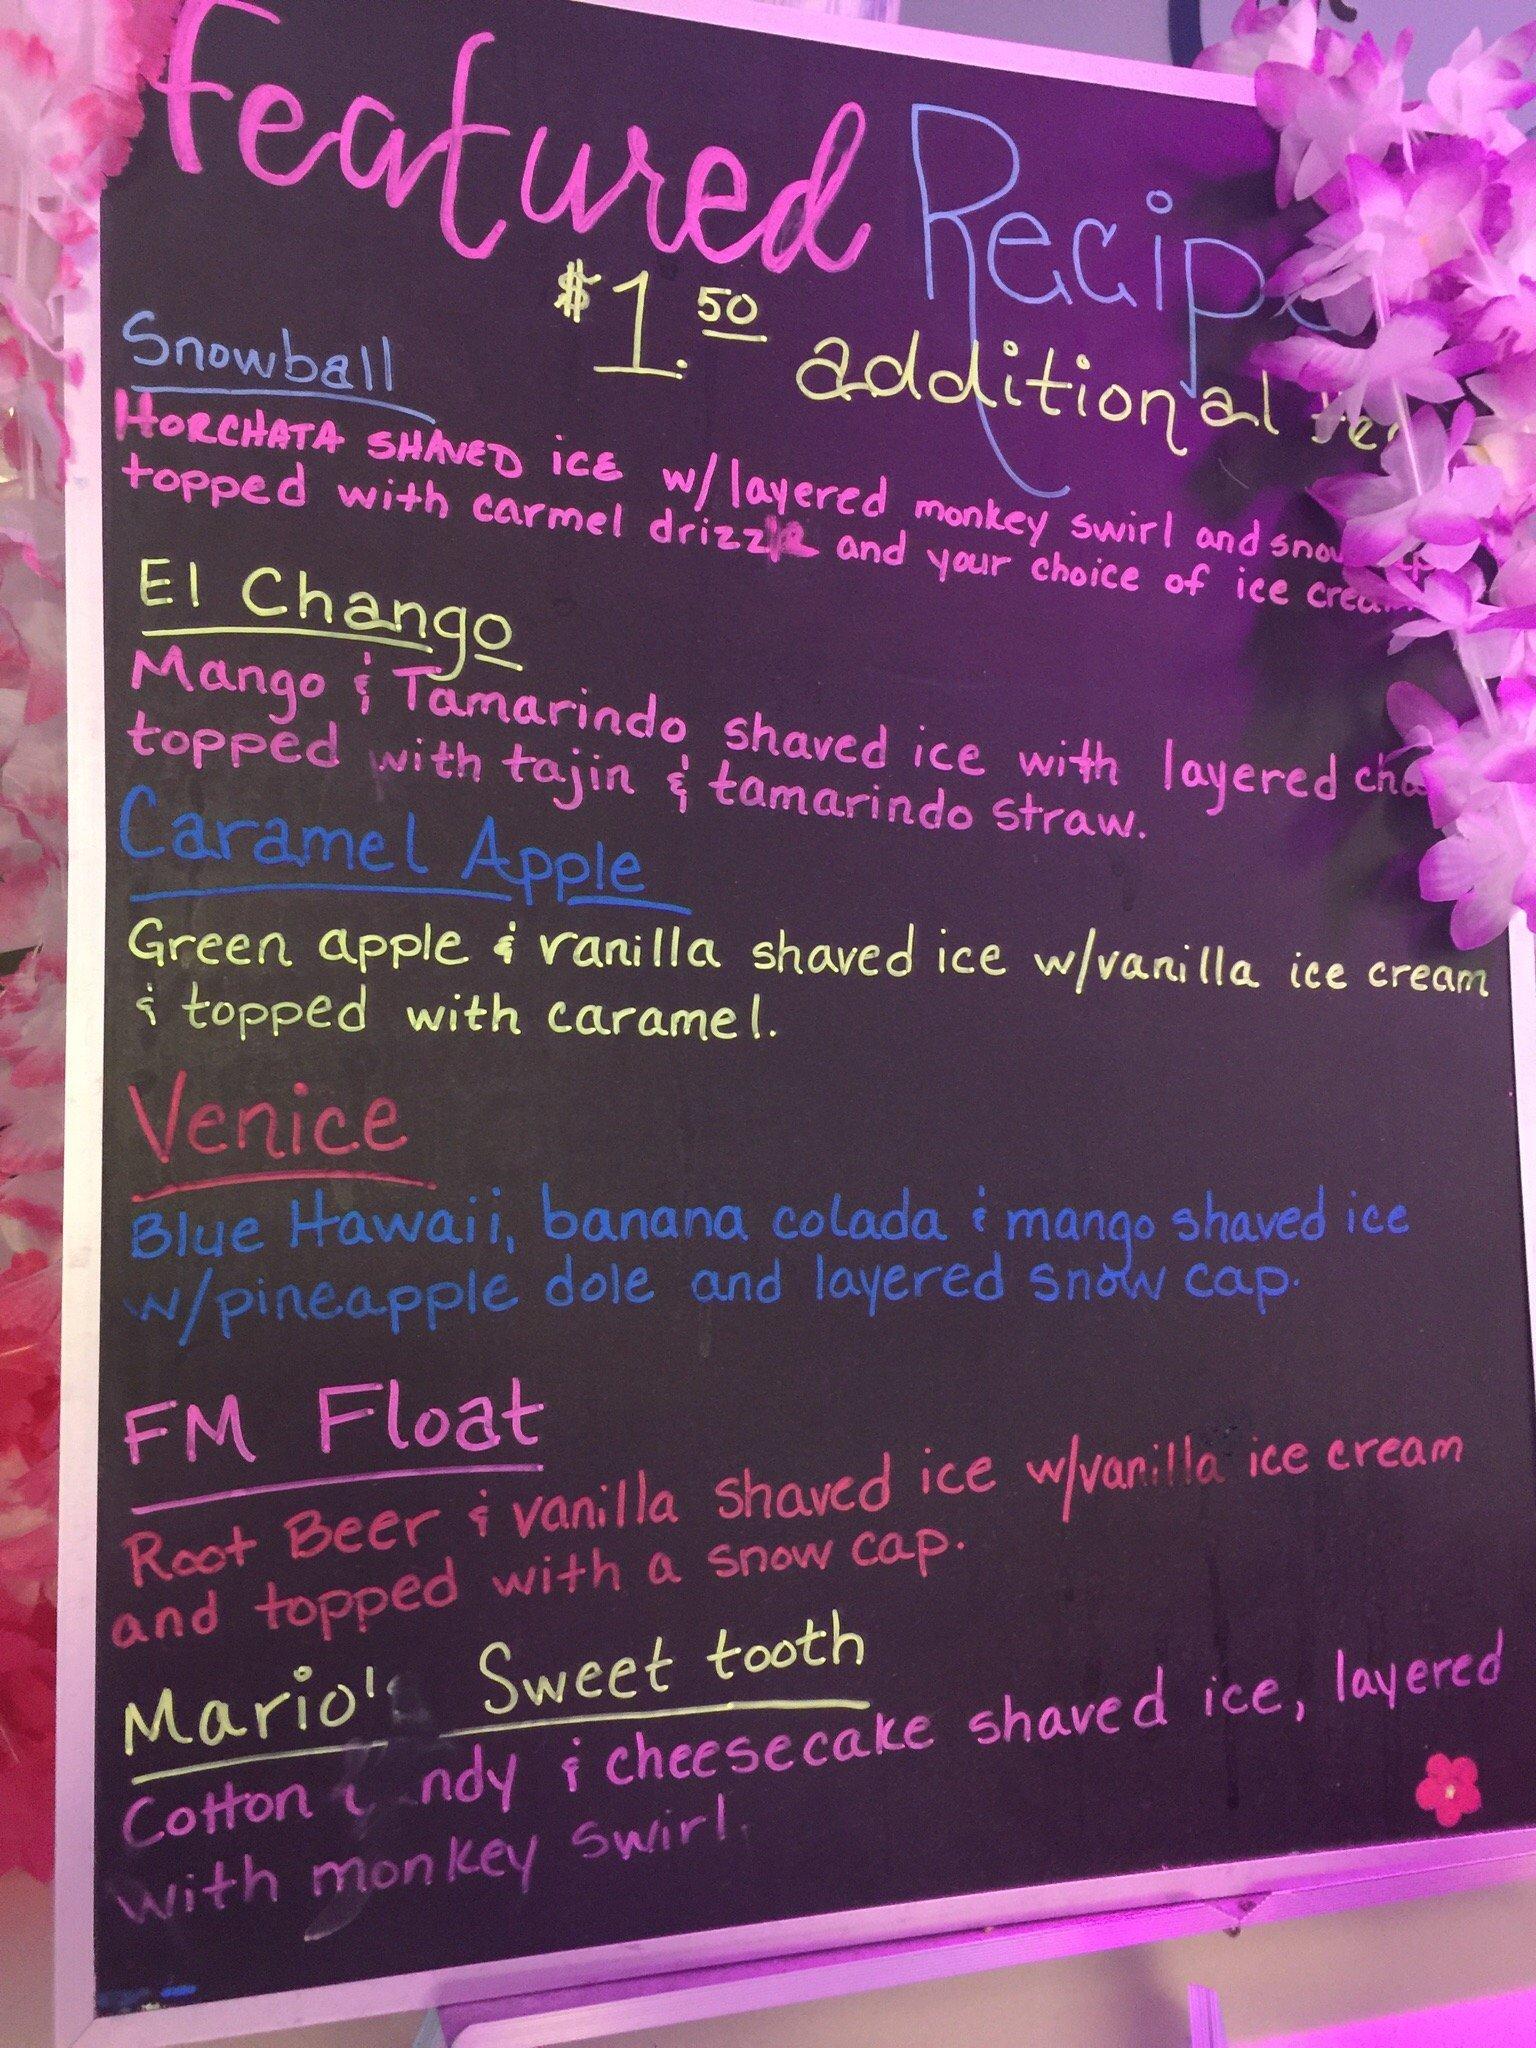 Featured Recipe
$1.50 additional
Snowball
HORCHATA SHAVED ICE w/layered monkey swirl and
topped with carmel drizzle and your choice of ice cream
El Chango
Mango & Tamarindo shaved ice with layered
topped with tajin & tamarindo straw.
Caramel Apple
Green apple & vanilla shaved ice w/vanilla ice cream
& topped with caramel.
Venice
Blue Hawaii, banana colada & mango shaved ice
w/pineapple dole and layered snow cap.
FM Float
Root Beer & vanilla shaved ice w/vanilla ice cream
and topped with a snow cap.
Mario's Sweet tooth
Cotton & cheesecake shaved ice, layered
with monkey swirl.